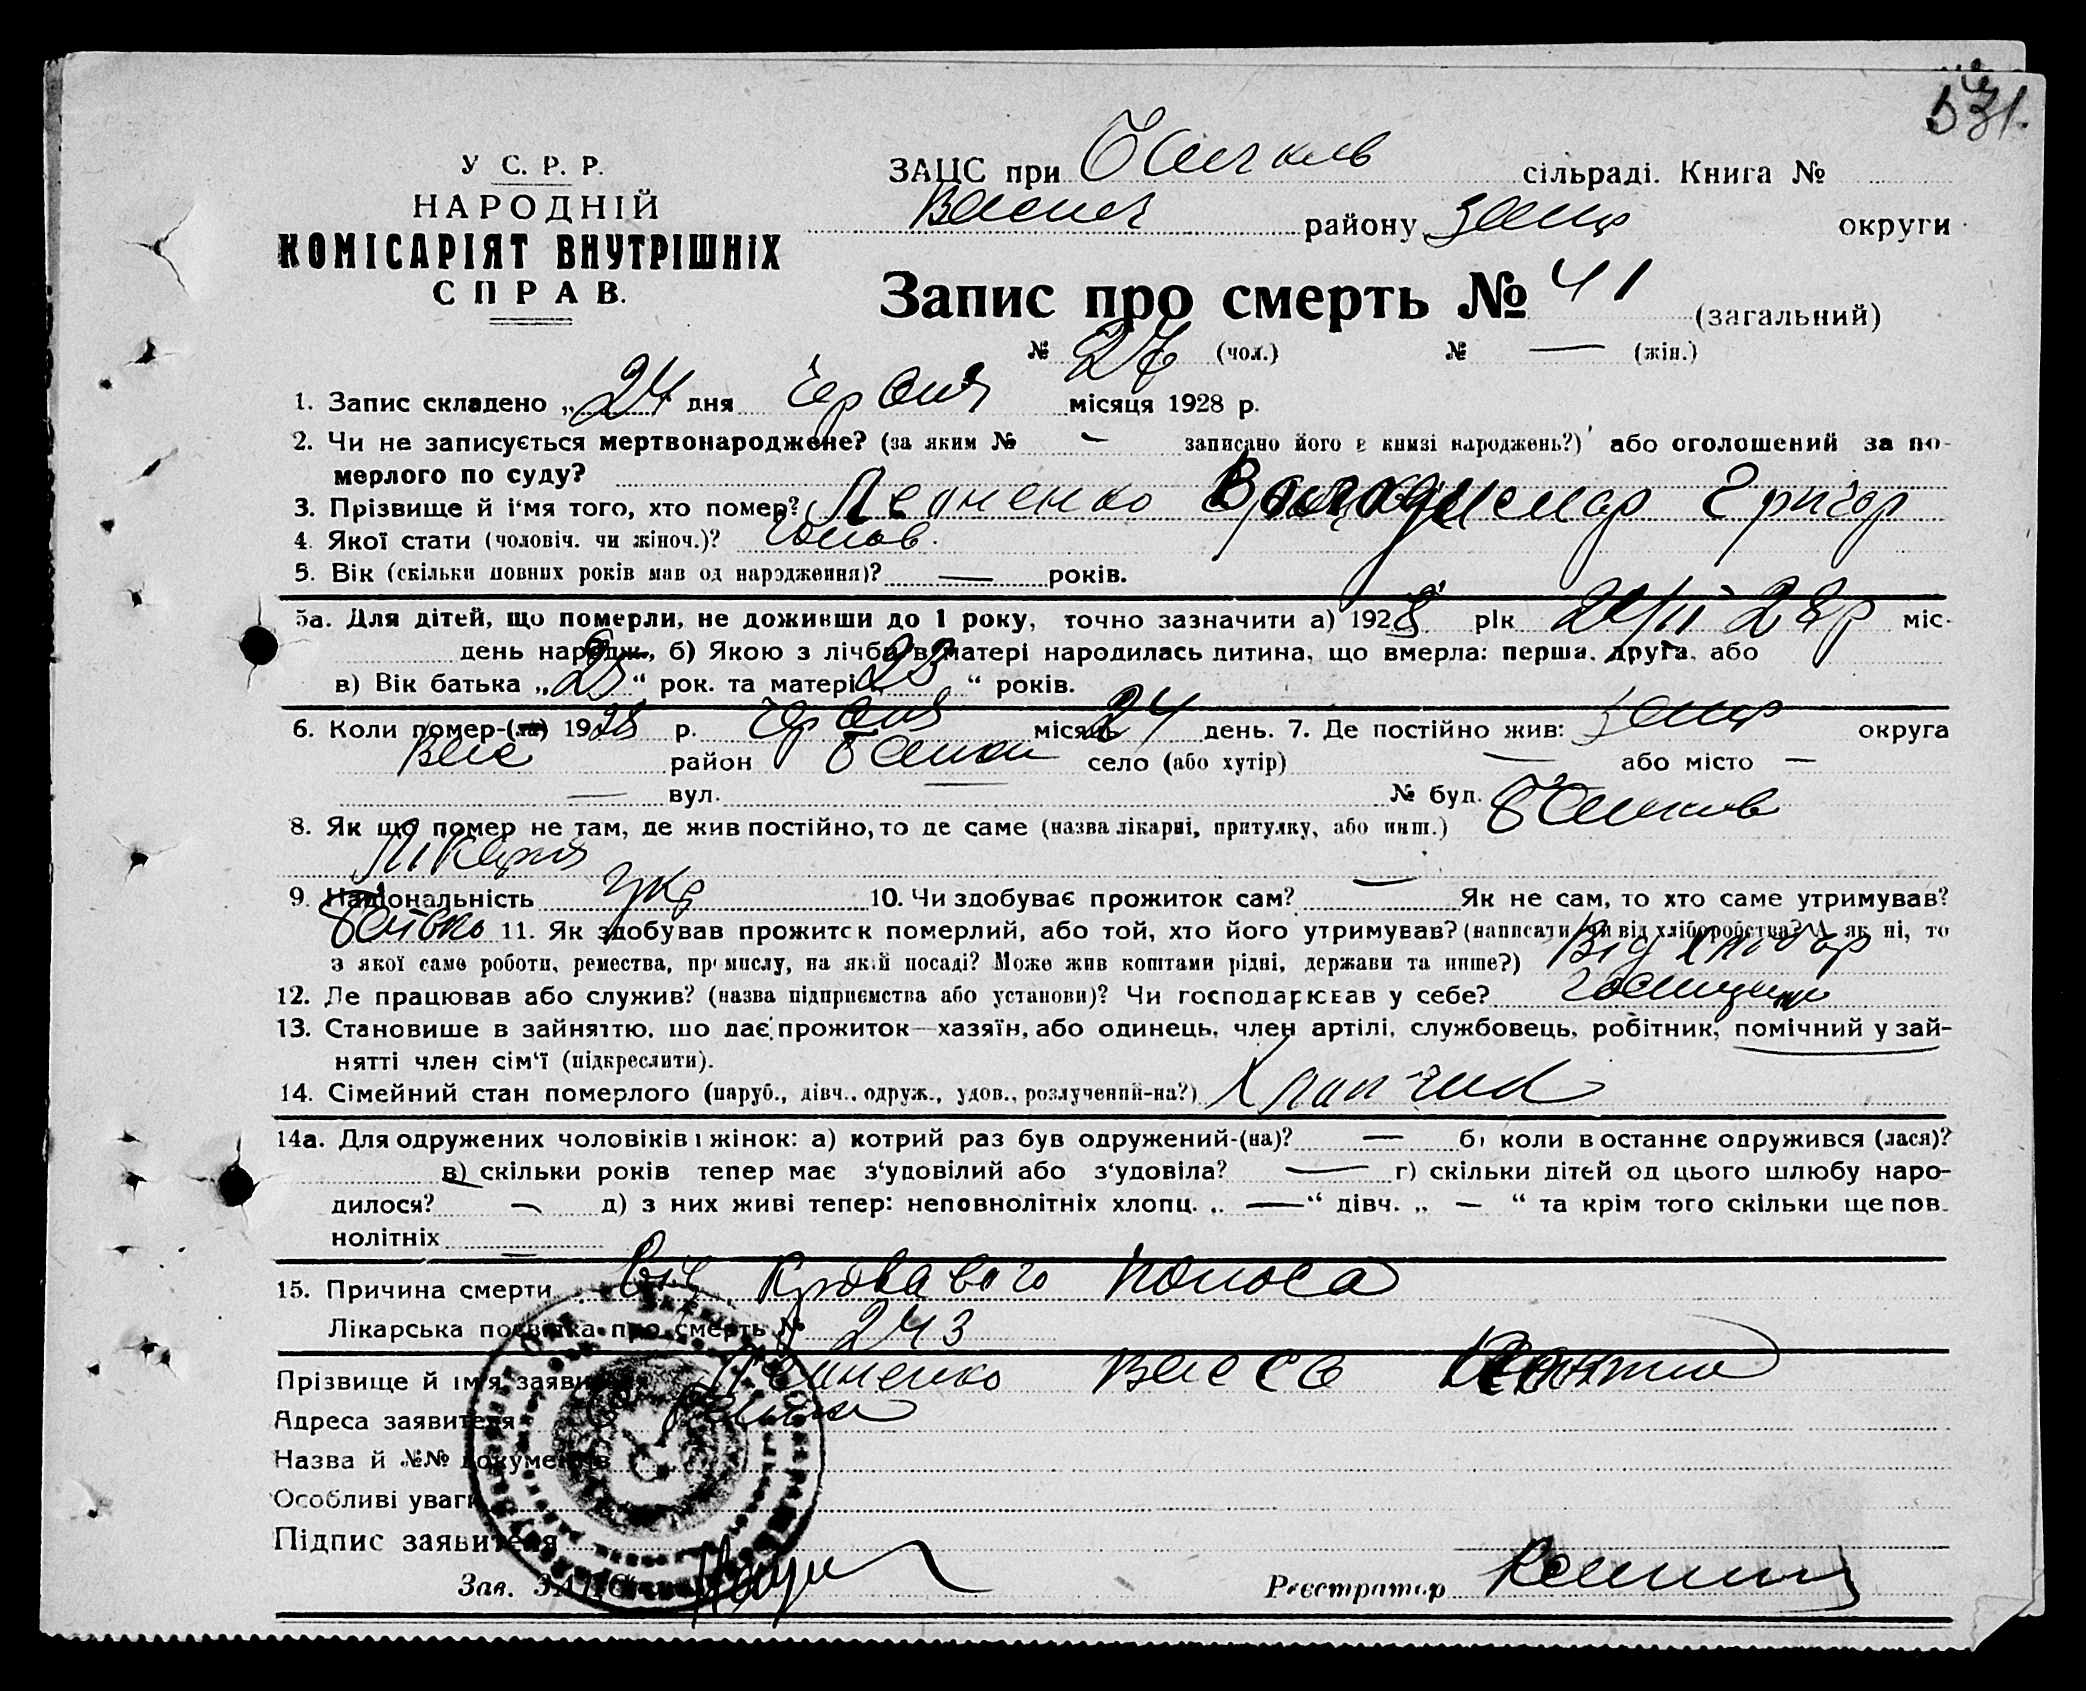 531.
У С. Р. Р.
НАРОДНІЙ
КОМІСАРІЯТ ВНУТРІШНІХ
СПРАВ.
ЗАЦС при сільраді. Книга №
Васил району Запор округи
Запис про смерть № 41 (загальний)
№ 27 (чол.) № — (жін.)
1. Запис складено „24" дня червня місяця 1928 р.
2. Чи не записується мертвонароджене? (за яким № — записано його в книзі народжень?) або оголошений за по-
мерлого по суду?
3. Прізвище й ім'я того, хто помер? Володимир Григор
4. Якої стати (чоловіч. чи жіноч.)? чолов.
5. Вік (скільки повних років мав од народження)? — років.
5а. Для дітей, що померли, не доживши до 1 року, точно зазначити а) 1928 рік 28р міс.
день народж., б) Якою з лічби в матері народилась дитина, що вмерла: перша, друга, або
в) Вік батька „25" рок. та матері „23" років.
6. Коли помер-(ла) 1928 р. червня місяць 24 день. 7. Де постійно жив: Запор округа
Вас район село (або хутір) — або місто —
— вул. — № буд.
8. Як що помер не там, де жив постійно, то де саме (назва лікарні, притулку, або инш.)
Лікарня
9. Національність укр 10. Чи здобуває прожиток сам? — Як не сам, то хто саме утримував?
батько 11. Як здобував прожиток померлий, або той, хто його утримував? (написати, чи від хліборобства? А як ні, то
з якої саме роботи, ремества, промислу, на якій посаді? Може жив коштами рідні, держави та инше?) Від хлібор
12. Де працював або служив? (назва підприємства або установи)? Чи господарював у себе?
13. Становище в зайняттю, що дає прожиток—хазяїн, або одинець, член артілі, службовець, робітник, помічний у зай-
нятті член сім'ї (підкреслити).
14. Сімейний стан померлого (паруб., дівч., одруж., удов., розлучений-на?) Хлопчик
14а. Для одружених чоловіків і жінок: а) котрий раз був одружений-(на)? — б) коли в останнє одружився (лася)?
в) скільки років тепер має з'удовілий або з'удовіла? — г) скільки дітей од цього шлюбу наро-
дилося? — д) з них живі тепер: неповнолітніх хлопц. „ — " дівч. „ — " та крім того скільки ще пов-
нолітніх —
15. Причина смерти Від Кровавого поноса
Лікарська посвідка про смерть № 243
Прізвище й ім'я заявителя
Адреса заявителя
Назва й №№ документів
Особливі уваги
Підпис заявителя
Зав. ЗАЦС Реєстратор